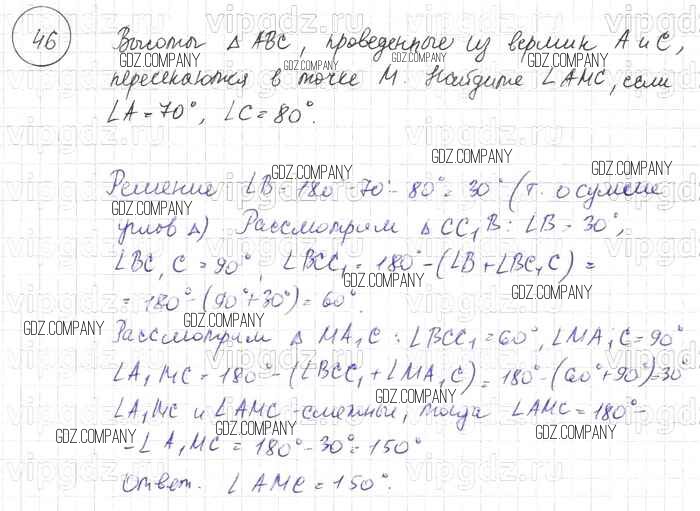 46
Высоты △ ABC, проведенные из вершин A и C,
пересекаются в точке M. Найдите ∠AMC, если
∠A = 70°, ∠C = 80°.
Решение ∠B = 180° - 70° - 80° = 30° (т. о сумме
углов △) Рассмотрим △ CC₁B: ∠B = 30°,
∠BC₁C = 90°, ∠BCC₁ = 180° - (∠B + ∠BC₁C) =
= 180° - (90° + 30°) = 60°.
Рассмотрим △ MA₁C: ∠BCC₁ = 60°, ∠MA₁C = 90°
∠A₁MC = 180° - (∠BCC₁ + ∠MA₁C) = 180° - (60° + 90°) = 30°
∠A₁MC и ∠AMC - смежные, тогда ∠AMC = 180° -
- ∠A₁MC = 180° - 30° = 150°
Ответ. ∠AMC = 150°.